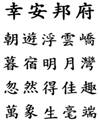 幸安邦府
朝遊浮雲嶠
暮宿明月灣
忽然得佳趣
萬象生毫端